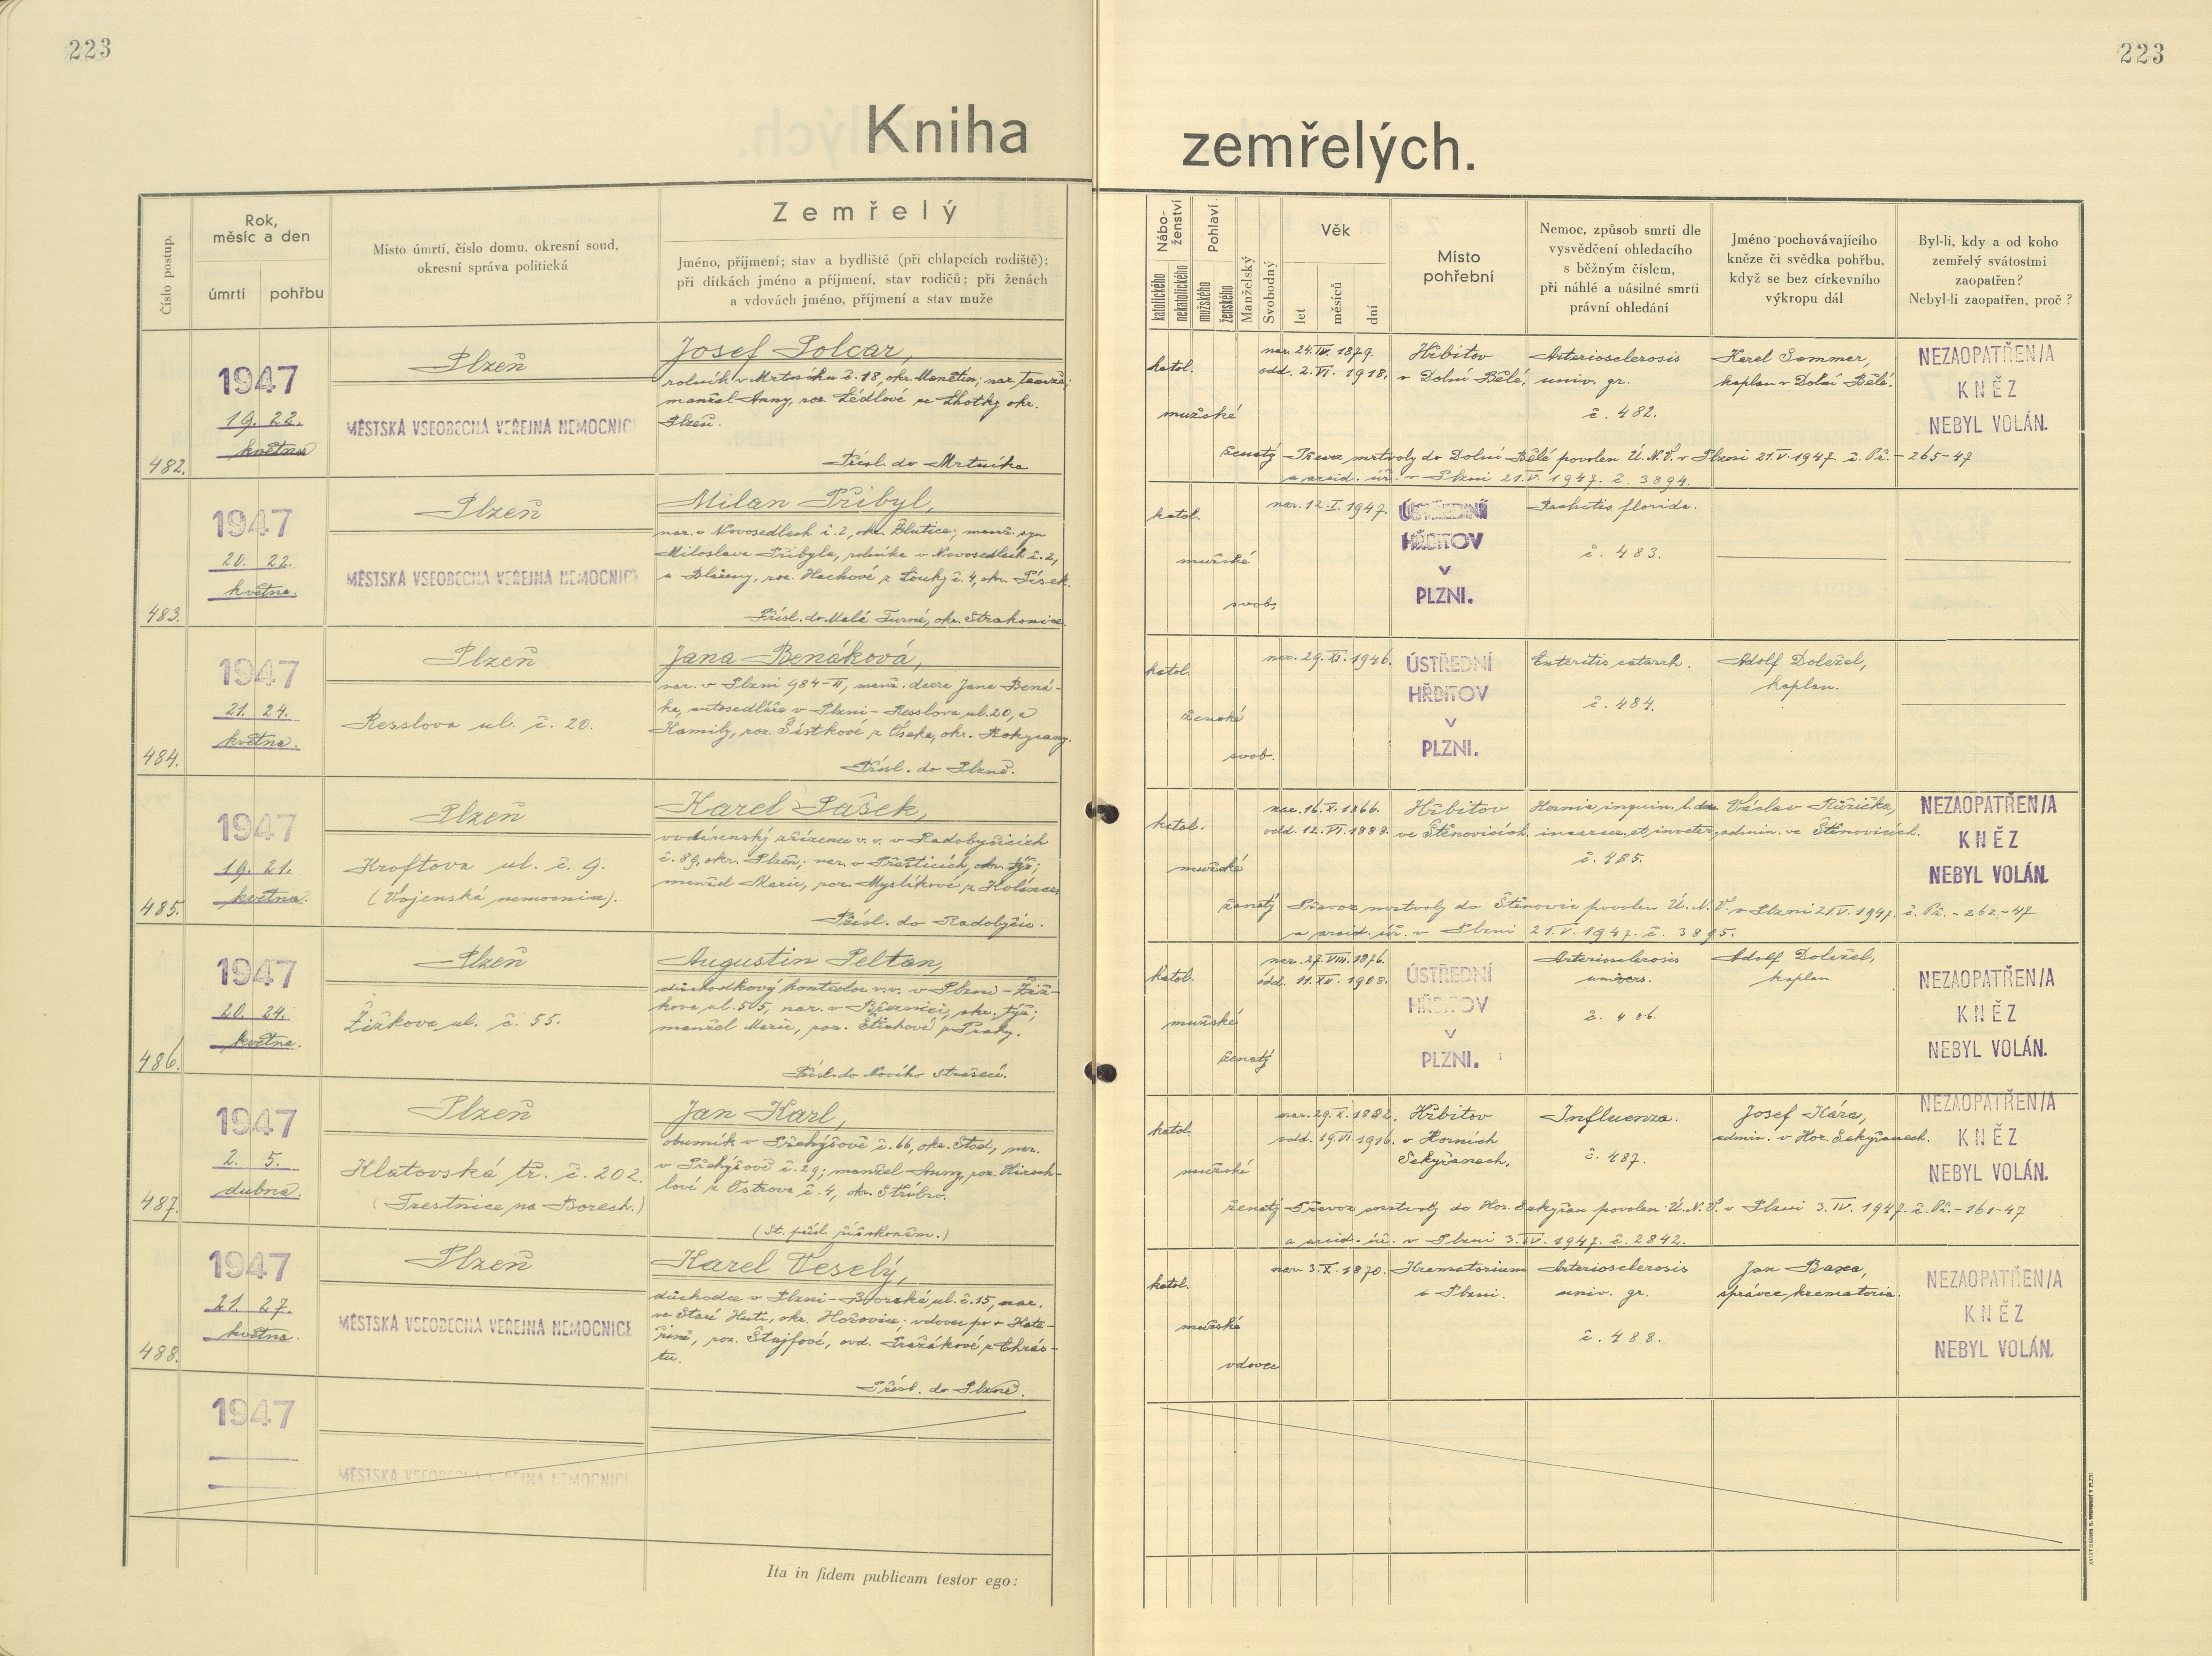 223
223
Kniha
zemřelých.
Číslo postup.
Rok,
měsíc a den
úmrtí
pohřbu
Místo úmrtí, číslo domu, okresní soud,
okresní správa politická
Zemřelý
Jméno, příjmení; stav a bydliště (při chlapcích rodiště);
při dítkách jméno a příjmení, stav rodičů; při ženách
a vdovách jméno, příjmení a stav muže
Nábo-
ženství
katolického
nekatolického
Pohlaví
mužského
ženského
Manželský
Svobodný
Věk
let
měsíců
dní
Místo
pohřební
Nemoc, způsob smrti dle
vysvědčení ohledacího
s běžným číslem,
při náhlé a násilné smrti
právní ohledání
Jméno pochovávajícího
kněze či svědka pohřbu,
když se bez církevního
výkropu dál
Byl-li, kdy a od koho
zemřelý svátostmi
zaopatřen?
Nebyl-li zaopatřen, proč?
482.
1947
19. 22.
května
Plzeň
MĚSTSKÁ VŠEOBECNÁ VEŘEJNÁ NEMOCNICE
Josef Polcar,
rolník v Mrtníku č. 18, okr. Manětín; nar. tamže;
manžel Anny, roz. Lédlové ze Lhotky, okr.
Plzeň.
Přísl. do Mrtníka
katol.
mužské
ženatý
nar. 24. IV. 1879.
odd. 2. VI. 1918.
Hřbitov
v Dolní Bělé.
Arteriosclerosis
univ. gr.
č. 482.
Karel Sommer,
kaplan v Dolní Bělé.
NEZAOPATŘEN/A
KNĚZ
NEBYL VOLÁN.
Převoz mrtvoly do Dolní Bělé povolen Ú.N.V. v Plzni 21. V. 1947. č. Př. - 265-47
a arcid. úř. v Plzni 21. V. 1947. č. 3894.
483.
1947
20. 22.
května.
Plzeň
MĚSTSKÁ VŠEOBECNÁ VEŘEJNÁ NEMOCNICE
Milan Přibyl,
nar. v Novosedlech č. 2, okr. Blatice; manž. syn
Miloslava Přibyla, rolníka v Novosedlech č. 2,
a Blaženy, roz. Hachové z Louky č. 4, okr. Písek.
Přísl. do Malé Turné, okr. Strakonice.
katol.
mužské
svob.
nar. 12. I. 1947.
ÚSTŘEDNÍ
HŘBITOV
V
PLZNI.
Rachitis florida.
č. 483.
484.
1947
21. 24.
května.
Plzeň
Resslova ul. č. 20.
Jana Benáková,
nar. v Plzni 984-II, manž. dcera Jana Bená-
ka, autosedláře v Plzni - Resslova ul. 20, a
Kamily, roz. Šístkové z Oseka, okr. Rokycany.
Přísl. do Plzně.
katol.
ženské
svob.
nar. 29. XI. 1946.
ÚSTŘEDNÍ
HŘBITOV
V
PLZNI.
Enteritis catarrh.
č. 484.
Adolf Doležel,
kaplan.
485.
1947
19. 21.
května.
Plzeň
Kroftova ul. č. 9.
(Vojenská nemocnice).
Karel Pašek,
vodárenský zřízenec v.v. v Radobyčicích
č. 89, okr. Plzeň; nar. v Přešticích, okr. týž;
manžel Marie, roz. Myslíkové z Kolince
Přísl. do Radobyčic.
katol.
mužské
ženatý
nar. 16. X. 1866.
odd. 12. VI. 1888.
Hřbitov
ve Štěnovicích
Hernia inguin. l. dx.
incarcer. et inveter.
č. 485.
Václav Růžička,
admin. ve Štěnovicích.
NEZAOPATŘEN/A
KNĚZ
NEBYL VOLÁN.
Převoz mrtvoly do Štěnovic povolen Ú.N.V. v Plzni 21. V. 1947. č. Př. - 262-47
a arcid. úř. v Plzni 21. V. 1947. č. 3895.
486.
1947
20. 24.
května.
Plzeň
Žižkova ul. č. 55.
Augustin Peltan,
důchodkový kontrolor v.v. v Plzni - Žiž-
kova ul. 55, nar. v Březnici, okr. týž;
manžel Marie, roz. Štichové z Prahy.
Přísl. do Nového Strašecí.
katol.
mužské
ženatý
nar. 27. VIII. 1876.
odd. 11. XII. 1908.
ÚSTŘEDNÍ
HŘBITOV
V
PLZNI.
Arteriosclerosis
univers.
č. 486.
Adolf Doležel,
kaplan.
NEZAOPATŘEN/A
KNĚZ
NEBYL VOLÁN.
487.
1947
2. 5.
dubna.
Plzeň
Klatovská tř. č. 202.
(Trestnice na Borech.)
Jan Karl,
obuvník v Přehýšově č. 66, okr. Stod, nar.
v Přehýšově č. 29; manžel Anny, roz. Hirsch-
lové z Ostrova č. 4, okr. Stříbro.
(St. přísl. německá.)
katol.
mužské
ženatý
nar. 29. X. 1882.
odd. 19. VI. 1916.
Hřbitov
v Horních
Sekyřanech.
Influenza.
č. 487.
Josef Kára,
admin. v Hor. Sekyřanech.
NEZAOPATŘEN/A
KNĚZ
NEBYL VOLÁN.
Převoz mrtvoly do Hor. Sekyřan povolen Ú.N.V. v Plzni 3. IV. 1947. č. Př. - 161-47
a arcid. úř. v Plzni 3. IV. 1947. č. 2842.
488.
1947
21. 27.
května.
Plzeň
MĚSTSKÁ VŠEOBECNÁ VEŘEJNÁ NEMOCNICE
Karel Veselý,
důchodce v Plzni - Borská ul. č. 15, nar.
ve Staré Huti, okr. Hořovice; vdovec po + Kate-
řině, roz. Štajfové, ovd. Pražákové z Chrás-
tu.
Přísl. do Plzně.
katol.
mužské
vdovec
nar. 3. X. 1870.
Krematorium
v Plzni.
Arteriosclerosis
univ. gr.
č. 488.
Jan Baxa,
správce krematoria.
NEZAOPATŘEN/A
KNĚZ
NEBYL VOLÁN.
1947
MĚSTSKÁ VŠEOBECNÁ VEŘEJNÁ NEMOCNICE
Ita in fidem publicam testor ego: